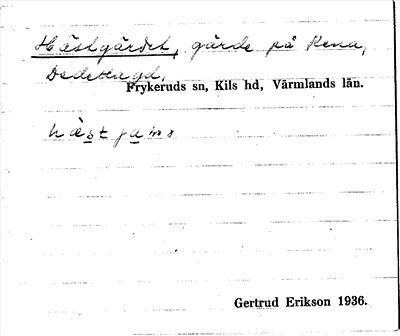 Hästgärdet, gärde på Rena,
Frykeruds sn, Kils hd, Värmlands län.
Gertrud Erikson 1936.